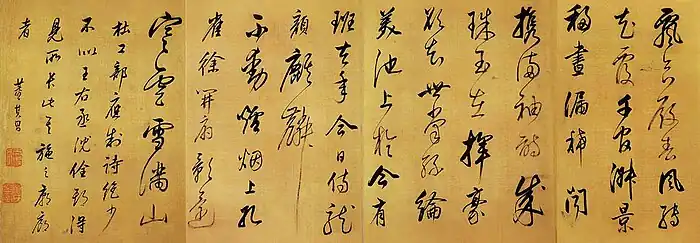 飄合殿春風轉
花覆千官淑景
移晝漏稀聞
攜滿袖詩成
珠玉在揮毫
欲知世掌絲綸
美池上於今有
班去年今日侍龍
顏麒麟
不動爐煙上孔
雀徐開扇影還
寒雲雪滿山
杜工部應制詩絕少
不似王右丞沈佺期得
見所長此其施之廊廟
者
董其昌